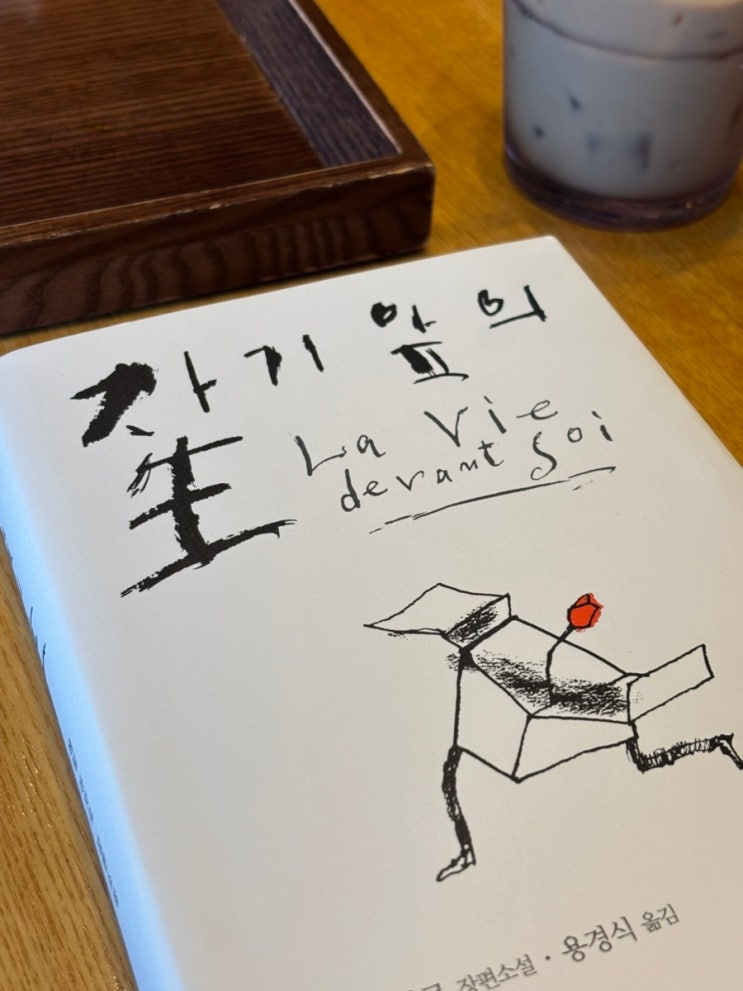 자기 앞의
生
La Vie
devant Soi
장편소설 · 용경식 옮김